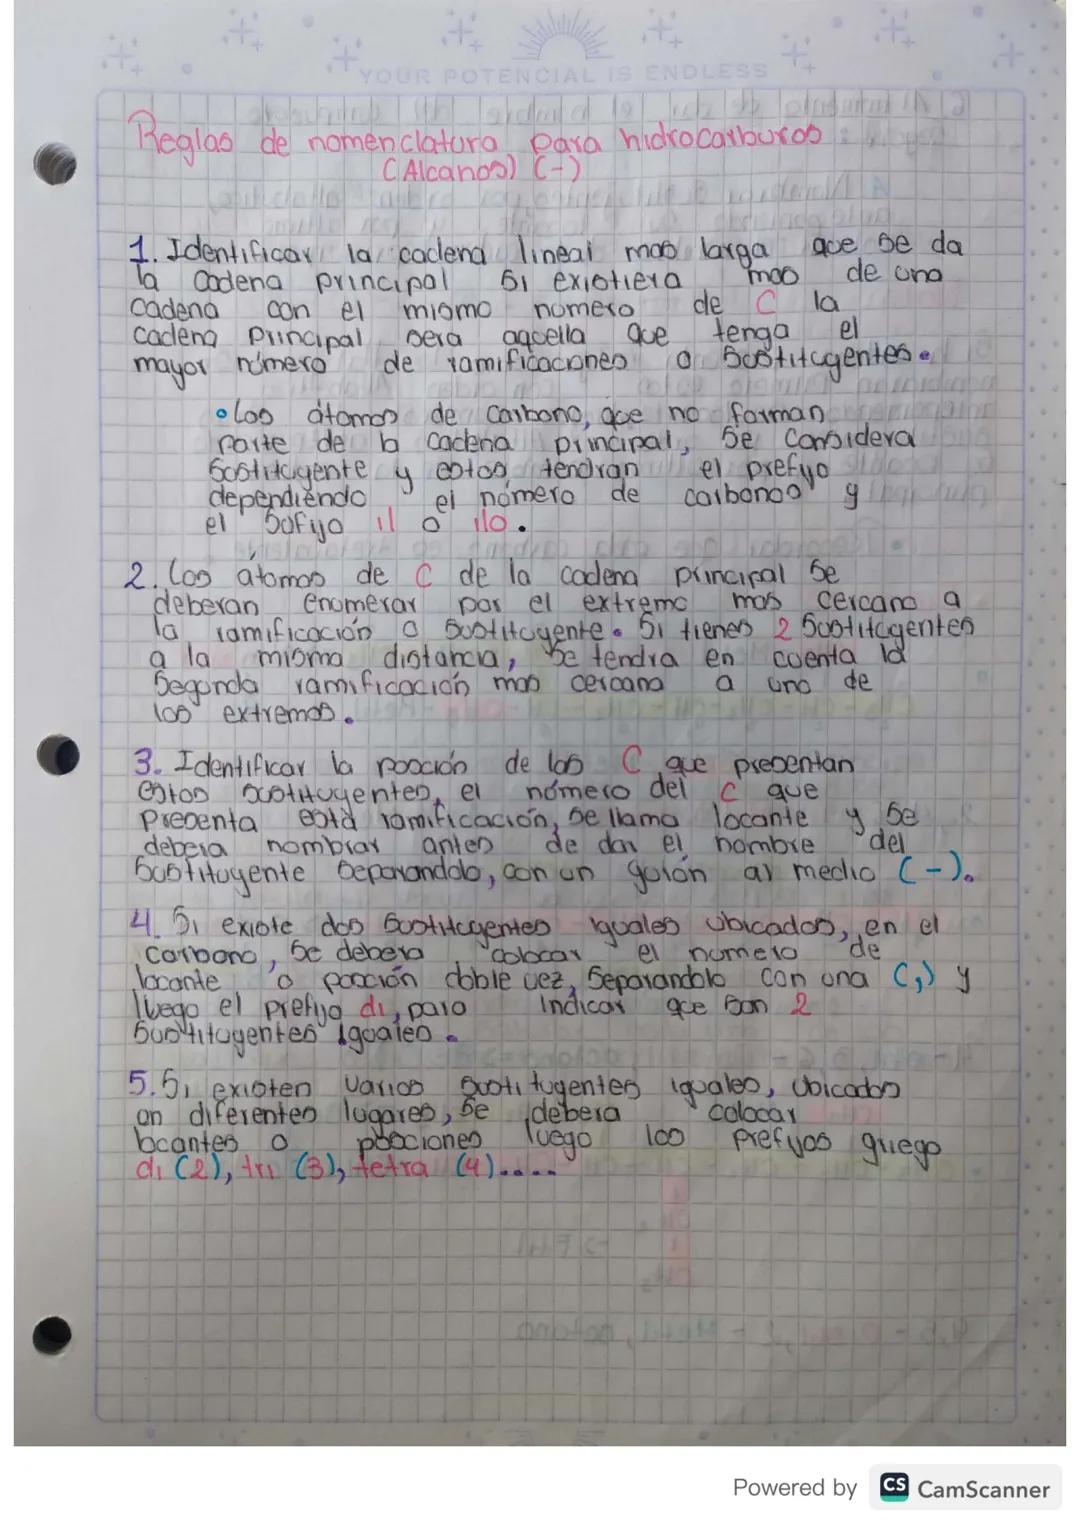 YOUR POTENCIAL IS ENDLESS
Reglas de nomenclatura para hidrocarburos
(Alcanos) (-)
1. Identificar la cadena lineal mas larga que se da
la cadena principal si existiera mas de una
cadena con el mismo numero de C la
cadena principal sera aquella que tenga el
mayor número de ramificaciones o sustituyentes.
• Los átomos de carbono, que no forman
parte de la cadena principal, se considera
sustituyente y estos tendran el prefijo
dependiendo el número de carbonos y
el sufijo il o ilo.
2. Los átomos de C de la cadena principal se
deberan enumerar por el extremo mas cercano a
la ramificación o sustituyente. Si tienes 2 sustituyentes
a la misma distancia, se tendra en cuenta la
segunda ramificación mas cercana a uno de
los extremos.
3. Identificar la posción de los C que presentan
estos sustituyentes, el número del C que
presenta está ramificación, se llama locante y se
debera nombrar antes de dar el nombre del
sustituyente separandolo, con un guión al medio (-).
4. Si existe dos sustituyentes iguales ubicados, en el
carbono, se debera colocar el numero de
locante o posción doble vez, separandolo con una (,) y
luego el prefijo di, para indicar que son 2
sustituyentes iguales.
5. Si existen varios sustituyentes iguales, ubicados
en diferentes lugares, se debera colocar
locantes o posciones luego los prefijos griego
di (2), tri (3), tetra (4)....
Powered by CS CamScanner